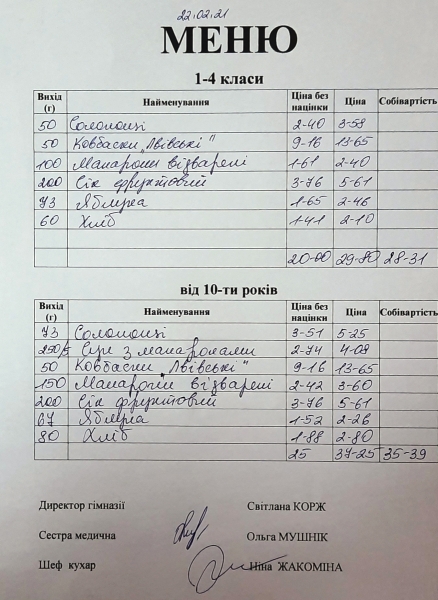 22.02.21
МЕНЮ
1-4 класи
Вихід (г) Найменування Ціна без націнки Ціна Собівартість
50 Солоношці 2-40 3-58
50 Ковбаски "Львівські" 9-16 13-65
100 Макарони відварені 1-61 2-40
200 Сік фруктовий 3-76 5-61
73 Яблука 1-65 2-46
60 Хліб 1-41 2-10
20-00 29-80 28-31
від 10-ти років
Вихід (г) Найменування Ціна без націнки Ціна Собівартість
73 Солоношці 3-51 5-25
250/5 Суп з макаронами 2-74 4-09
50 Ковбаски "Львівські" 9-16 13-65
150 Макарони відварені 2-42 3-60
200 Сік фруктовий 3-76 5-61
67 Яблука 1-52 2-26
80 Хліб 1-88 2-80
25 37-25 35-39
Директор гімназії Світлана КОРЖ
Сестра медична Ольга МУШНІК
Шеф кухар Ніна ЖАКОМІНА